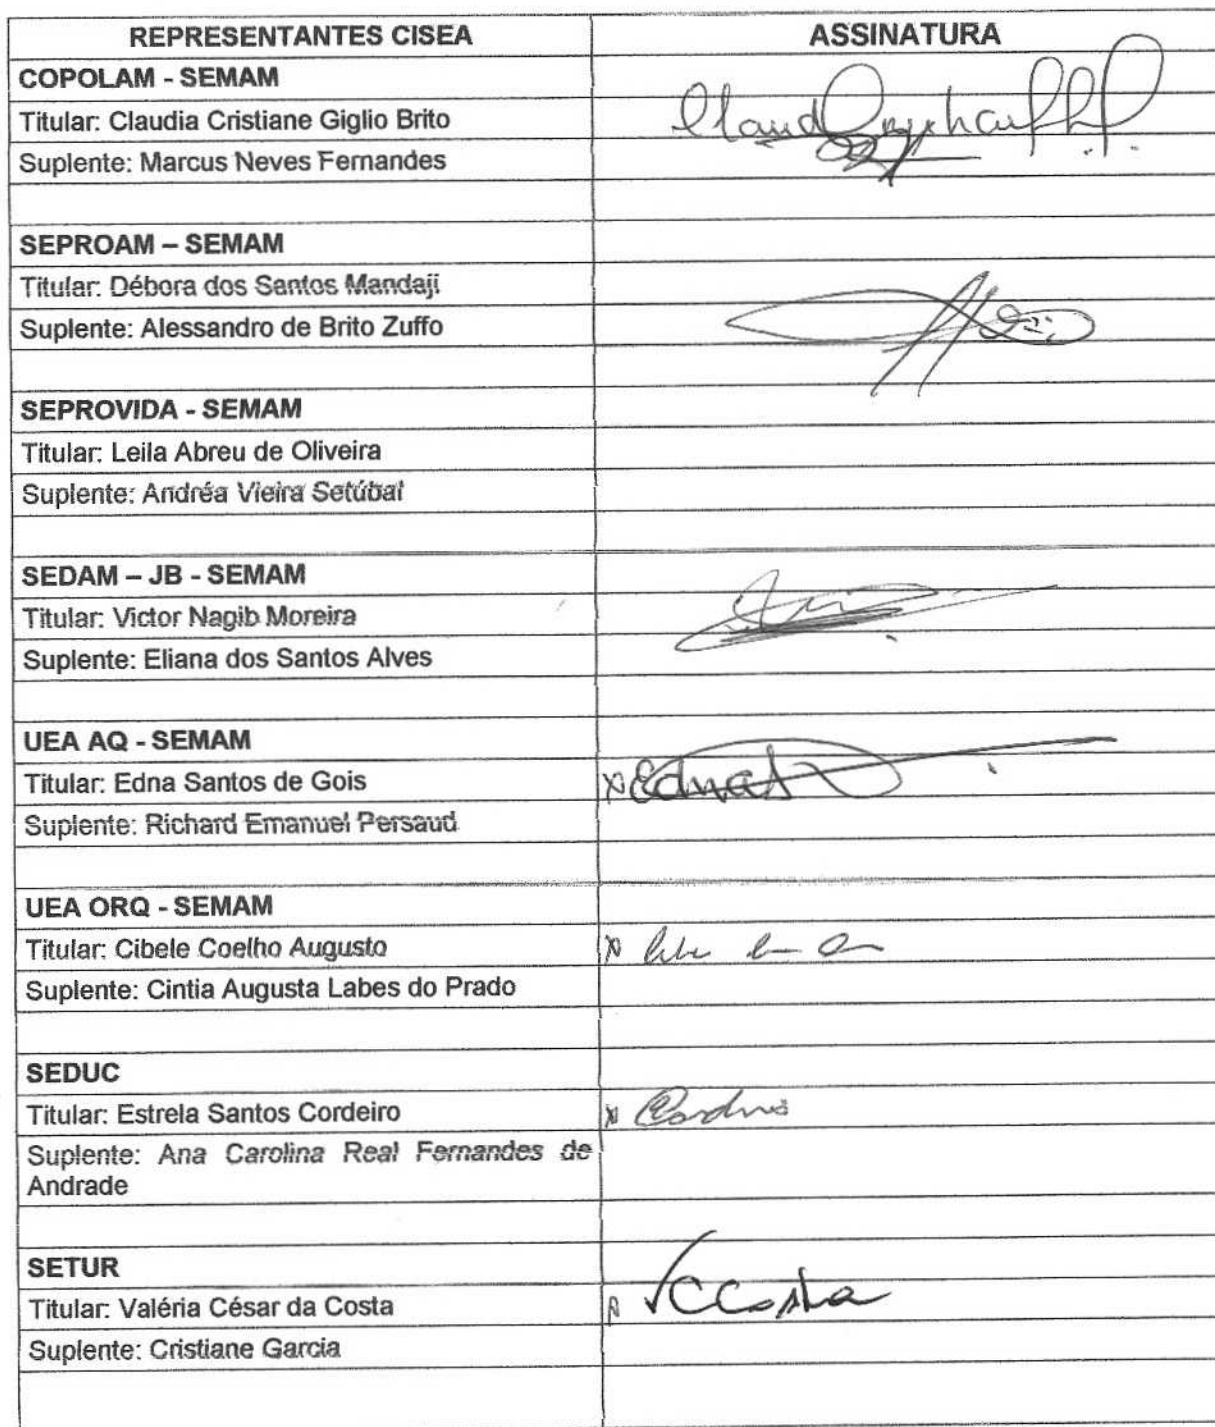 REPRESENTANTES CISEA ASSINATURA
COPOLAM - SEMAM
Titular: Claudia Cristiane Giglio Brito
Suplente: Marcus Neves Fernandes
SEPROAM – SEMAM
Titular: Débora dos Santos Mandaji
Suplente: Alessandro de Brito Zuffo
SEPROVIDA - SEMAM
Titular: Leila Abreu de Oliveira
Suplente: Andréa Vieira Setúbal
SEDAM – JB - SEMAM
Titular: Victor Nagib Moreira
Suplente: Eliana dos Santos Alves
UEA AQ - SEMAM
Titular: Edna Santos de Gois Edna
Suplente: Richard Emanuel Persaud
UEA ORQ - SEMAM
Titular: Cibele Coelho Augusto
Suplente: Cintia Augusta Labes do Prado
SEDUC
Titular: Estrela Santos Cordeiro
Suplente: Ana Carolina Real Fernandes de
Andrade
SETUR
Titular: Valéria César da Costa VCCosta
Suplente: Cristiane Garcia